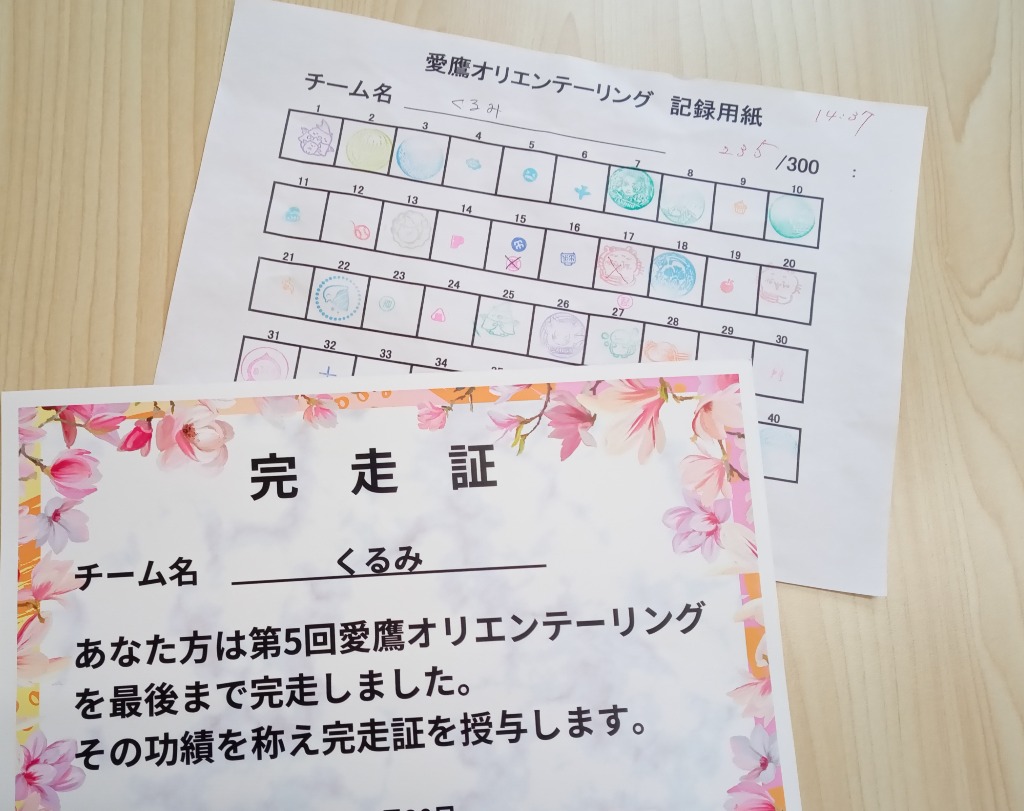 愛鷹オリエンテーリング 記録用紙
14:37
チーム名 くるみ
235 /300 :
1 2 3 4 5 6 7 8 9 10
11 12 13 14 15 16 17 18 19 20
21 22 23 24 25 26 27 28 29 30
31 32 33 34
40
完走証
チーム名 くるみ
あなた方は第5回愛鷹オリエンテーリング
を最後まで完走しました。
その功績を称え完走証を授与します。